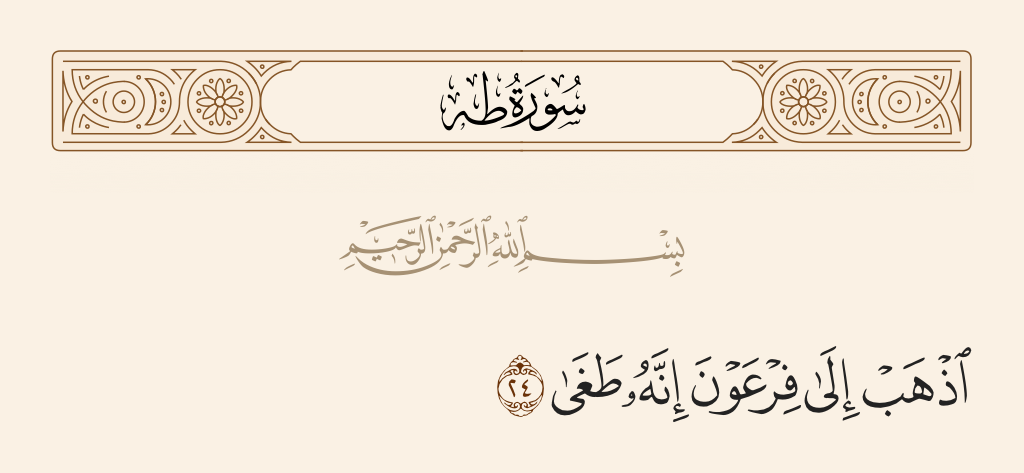 سُورَةُ طه
بِسْمِ ٱللَّهِ ٱلرَّحْمَٰنِ ٱلرَّحِيمِ
ٱذْهَبْ إِلَىٰ فِرْعَوْنَ إِنَّهُۥ طَغَىٰ ٢٤